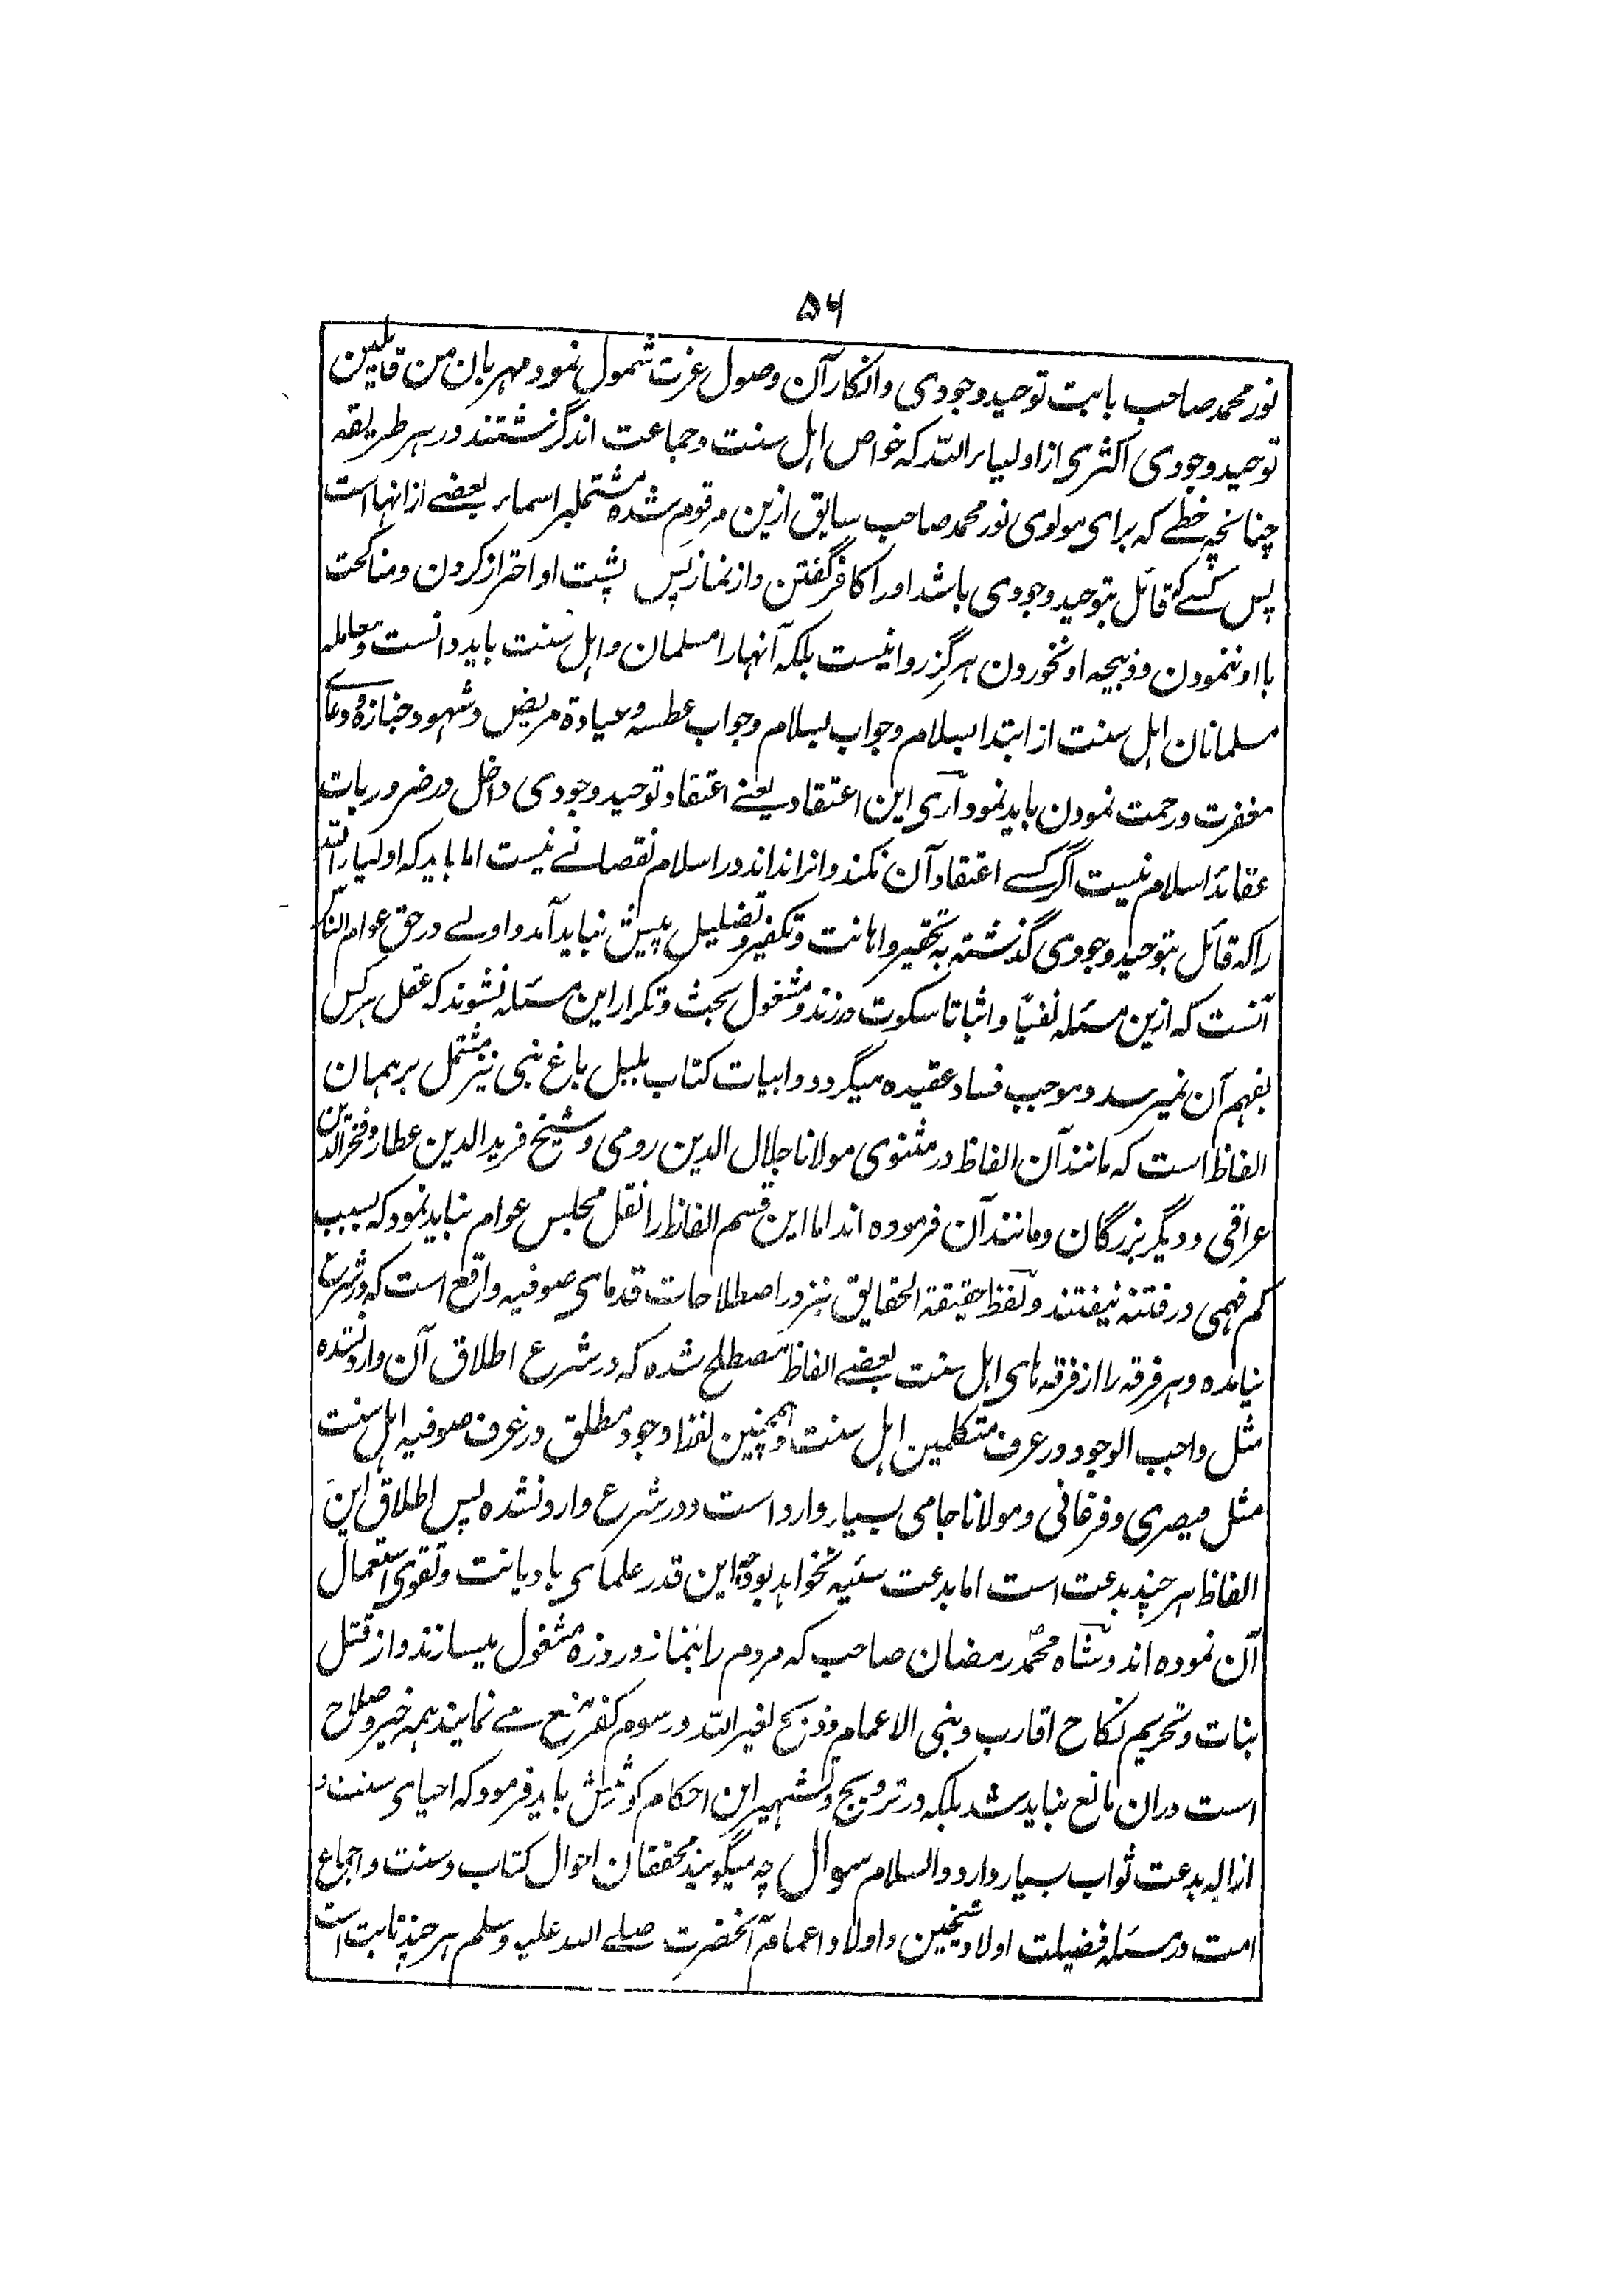 ۵۶
نور محمد صاحب بابت توحید وجودی و انکار آن وصول عزت شمول نمود مهربان من قایلین
توحید وجودی اکثری از اولیاء الله که خواص اهل سنت و جماعت اند گزشتند در هر طریقه
چنانچه خطے که برای مولوی نور محمد صاحب سابق ازین مرقوم شده مشتملبر اسماء بعضے ازانها است
پس کسے که قائل بتوحید وجودی باشد او را کافر گفتن و از نماز پس پشت او احتراز کردن و مناکحت
با او ننمودن و ذبیحه او نخوردن هرگز روا نیست بلکه آنها را مسلمان و اهل سنت باید دانست و معامله
مسلمانان اهل سنت از ابتدا بسلام و جواب بسلام و جواب عطسه و عیادة مریض و شهود جنازه و دعاے
مغفرت و رحمت نمودن باید نمود آری این اعتقاد یعنے اعتقاد توحید وجودی داخل در ضروریات
عقائد اسلام نیست اگر کسے اعتقاد آن نکند و انرا نداند در اسلام نقصانے نیست اما باید که اولیاء الله
را که قائل بتوحید وجودی گذشته به تحقیر و اهانت و تکفیر و تضلیل پیش نباید آمد و اولے در حق عوام الناس
آنست که ازین مسئله نفیًا و اثباتا سکوت ورزند و مشغول بحث و تکرار این مسئله نشوند که عقل هر کس
بفهم آن نمیرسد و موجب فساد عقیده میگردد و ابیات کتاب بلبل باغ نبی نیز مشتمل بر همان
الفاظ است که مانند آن الفاظ در مثنوی مولانا جلال الدین رومی و شیخ فرید الدین عطار و فخر الدین
عراقی و دیگر بزرگان و مانند آن فرموده اند اما این قسم الفاظ را نقل مجلس عوام نباید نمود که بسبب
کم فهمی در فتنه نیفتند و لفظ حقیقة الحقایق نیز در اصطلاحات قدمای صوفیه واقع است که در شرع
نیامده و هر فرقه را از فرقه های اهل سنت بعضے الفاظ مصطلح شده که در شرع اطلاق آن وارد نشده
مثل واجب الوجود در عرف متکلمین اهل سنت و همچنین لفظ وجود مطلق در عرف صوفیه اهل سنت
مثل قیصری و فرغانی و مولانا جامی بسیار وارد است و در شرع وارد نشده پس اطلاق این
الفاظ هر چند بدعت است اما بدعت سئیه نخواهد بود چه این قدر علمای با دیانت و تقوی استعمال
آن نموده اند و شاه محمد رمضان صاحب که مردم را بنماز و روزه مشغول میسازند و از قتل
بنات و تحریم نکاح اقارب و بنی الاعمام و ذبح لغیر الله و رسوم کفر منع مے نمایند همه خیر و صلاح
است دران مانع نباید شد بلکه در ترویج و تشهیر این احکام کوشش باید فرمود که احیای سنت و
ازاله بدعت ثواب بسیار دارد والسلام سوال چه میگویند محققان احوال کتاب و سنت و اجماع
امت در مسئله فضیلت اولاد شیخین و اولاد اعمام آنحضرت صلے الله علیه وسلم هر چند ثابت است